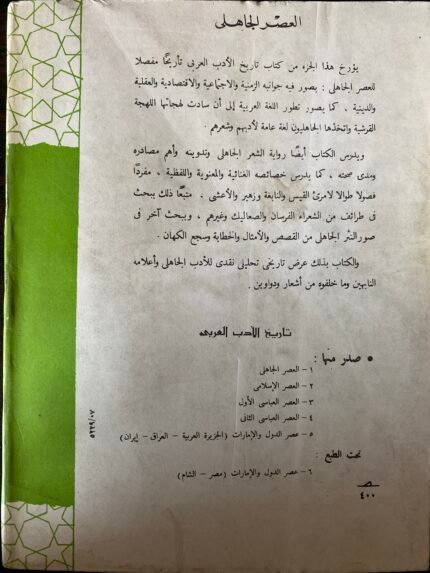 العصر الجاهلى
يؤرخ هذا الجزء من كتاب تاريخ الأدب العربى تأريخًا مفصلا
للعصر الجاهلى : بصور فيه جوانبه الزمنية والاجتماعية والاقتصادية والعقلية
والدينية . كما يصور تطور اللغة العربية إلى أن سادت لهجاتها اللهجة
القرشية واتخذها الجاهليون لغة عامة لأدبهم وشعرهم .
ويدرس الكتاب أيضًا رواية الشعر الجاهلى وتدوينه وأهم مصادره
ومدى صحته ، كما يدرس خصائصه الغنائية والمعنوية واللفظية ، مفردًا
فصولا طوالا لامرئ القيس والنابغة وزهير والأعشى . متبعًا ذلك ببحث
فى طرائف من الشعراء الفرسان والصعاليك وغيرهم ، وببحث آخر فى
صور النثر الجاهلى من القصص والأمثال والخطابة وسجع الكهان .
والكتاب بذلك عرض تاريخى تحليلى نقدى للأدب الجاهلى وأعلامه
النابهين وما خلفوه من أشعار ودواوين .
تاريخ الأدب العربى
● صدر منها :
١ – العصر الجاهلى
٢ – العصر الإسلامى
٣ – العصر العباسى الأول
٤ – العصر العباسى الثانى
٥ – عصر الدول والإمارات (الجزيرة العربية – العراق – إيران)
تحت الطبع :
٦ – عصر الدول والإمارات (مصر – الشام)
٤٠٠